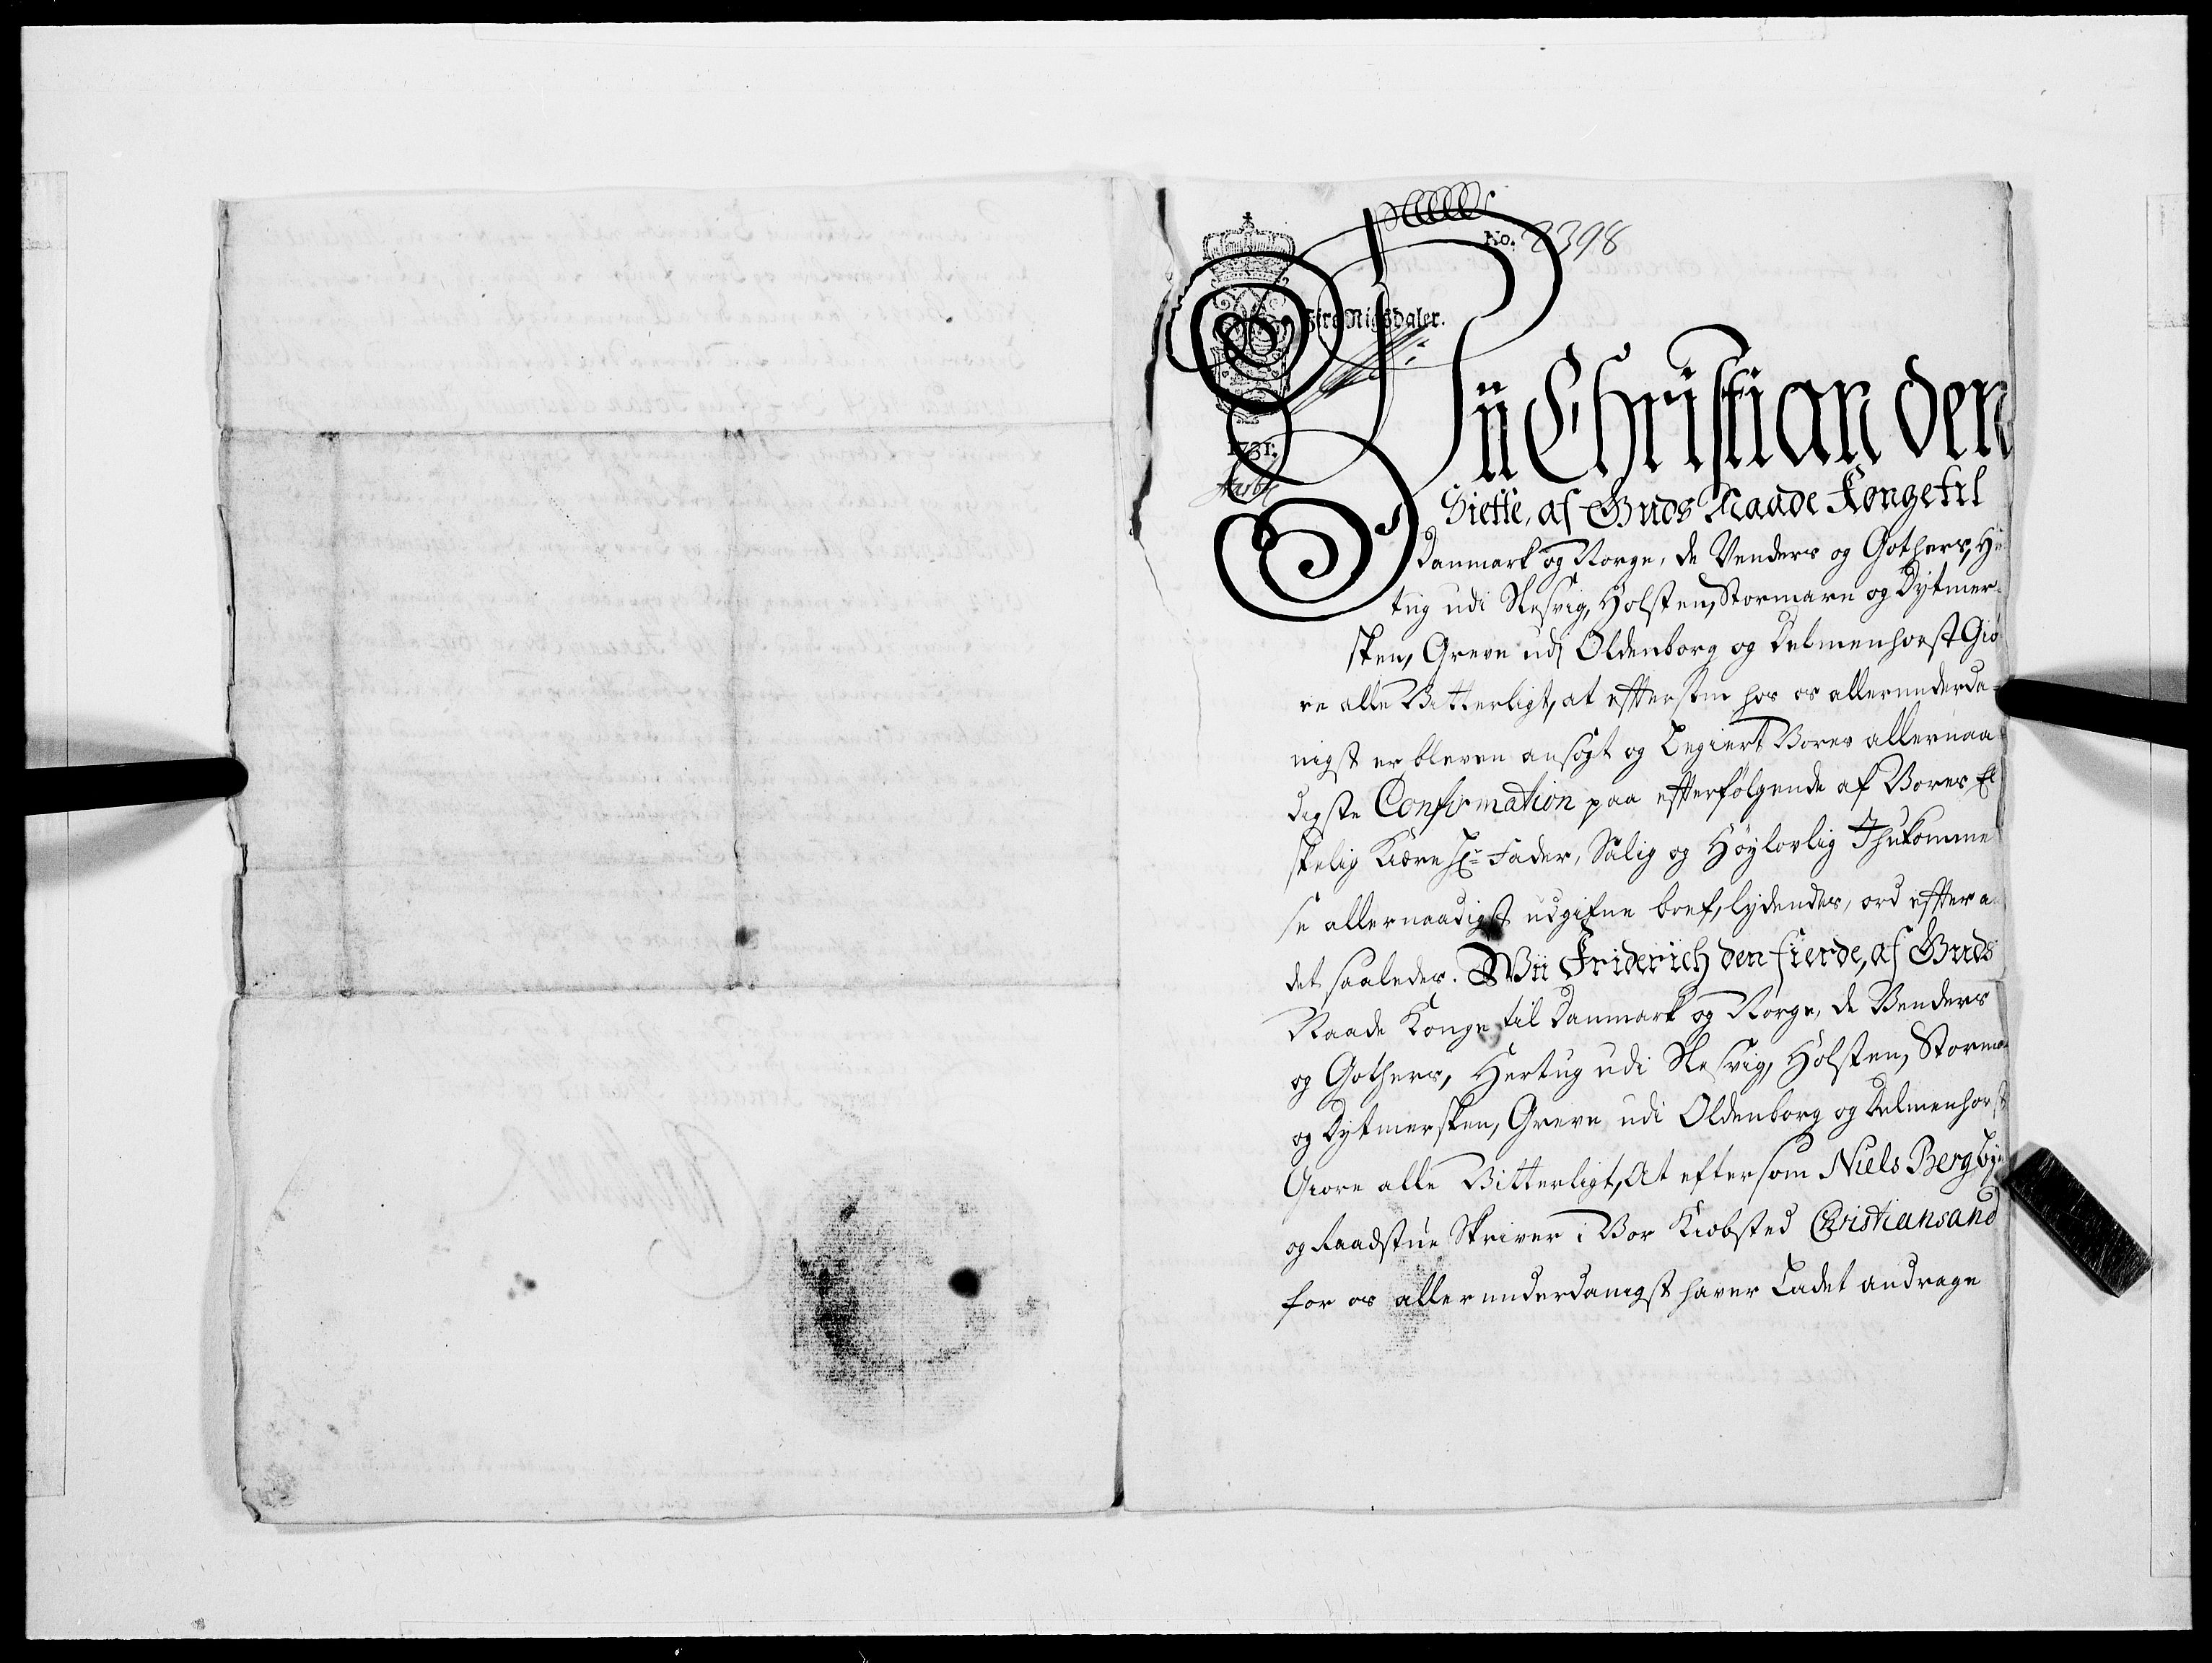 No. 2398
Fire Rigsdaler.
1731.
Wii Christian den
Siette, af Guds Naade Konge til
Danmark og Norge, de Venders og Gothers, He
tug udi Slesvig, Holsten, Stormarn og Dytmer-
sken, Greve udi Oldenborg og Delmenhorst Giø
re alle Vitterligt, at efftersom hos os allerunderda-
nigst er bleven ansøgt og begiert Vores allernaa-
digste Confirmation paa efterfølgende af Vores El
skelig Kiære Hr. Fader, Salig og Høylovlig Ihukomme
se allernaadigst udgifne bref, lydendes, ord effter a
det saaledes. Wii Friderich den fierde, af Guds
Naade Konge til Danmark og Norge, de Venders
og Gothers, Hertug udi Slesvig, Holsten, Storma
og Dytmersken, Greve udi Oldenborg og Delmenhorst
Giøre alle Vitterligt, At eftersom Niels Berg bye
og Raadstue Skriver i Vor Kiøbsted Christiansand
for os allerunderdanigst haver Ladet andrage